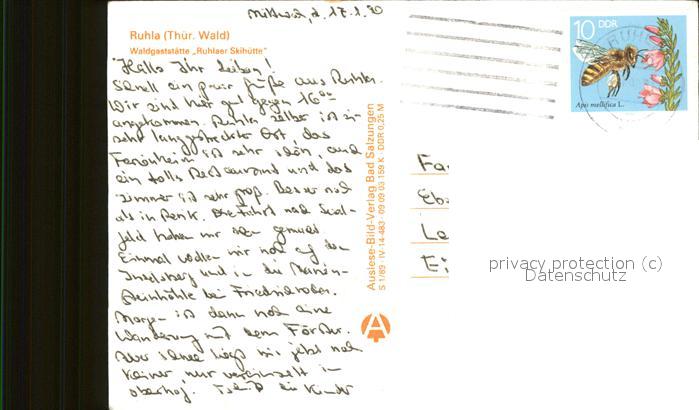 Mittwoch, d. 17.1.90
Ruhla (Thür. Wald)
Waldgaststätte „Ruhlaer Skihütte"
Hallo Ihr Lieben!
Schnell ein paar Grüße aus Ruhla.
Wir sind hier gut gegen 16⁰⁰
angekommen. Ruhla selber ist ein
sehr langgestreckter Ort, das
Ferienheim ist sehr schön, auch
ein tolles Restaurant und das
Zimmer ist sehr groß. Besser noch
als in Die Fahrt nach
feld haben wir
Einmal wollen wir noch auf den
Inselsberg und in die Marien-
bei Friedrichroda.
Morgen ist dann noch eine
Wanderung mit dem Förster.
liegt hier jetzt noch
keiner, nur vereinzelt in
Oberhof. Kinder
Auslese-Bild-Verlag Bad Salzungen
S 1/89 · IV-14-483 · 09 09 03 159 K · DDR 0,25 M
A
10 DDR
Apis mellifica L.
Fa
Eb
Le
E
privacy protection (c)
Datenschutz